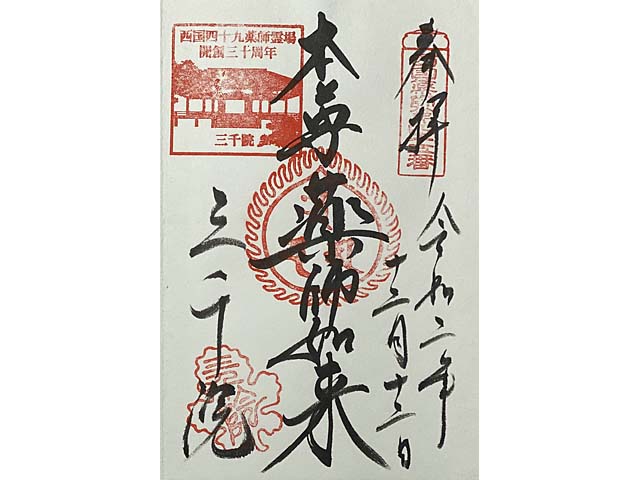 奉拝
令和二年
十二月十三日
本尊薬師如来
三千院
西国四十九薬師霊場
開創三十周年
三千院